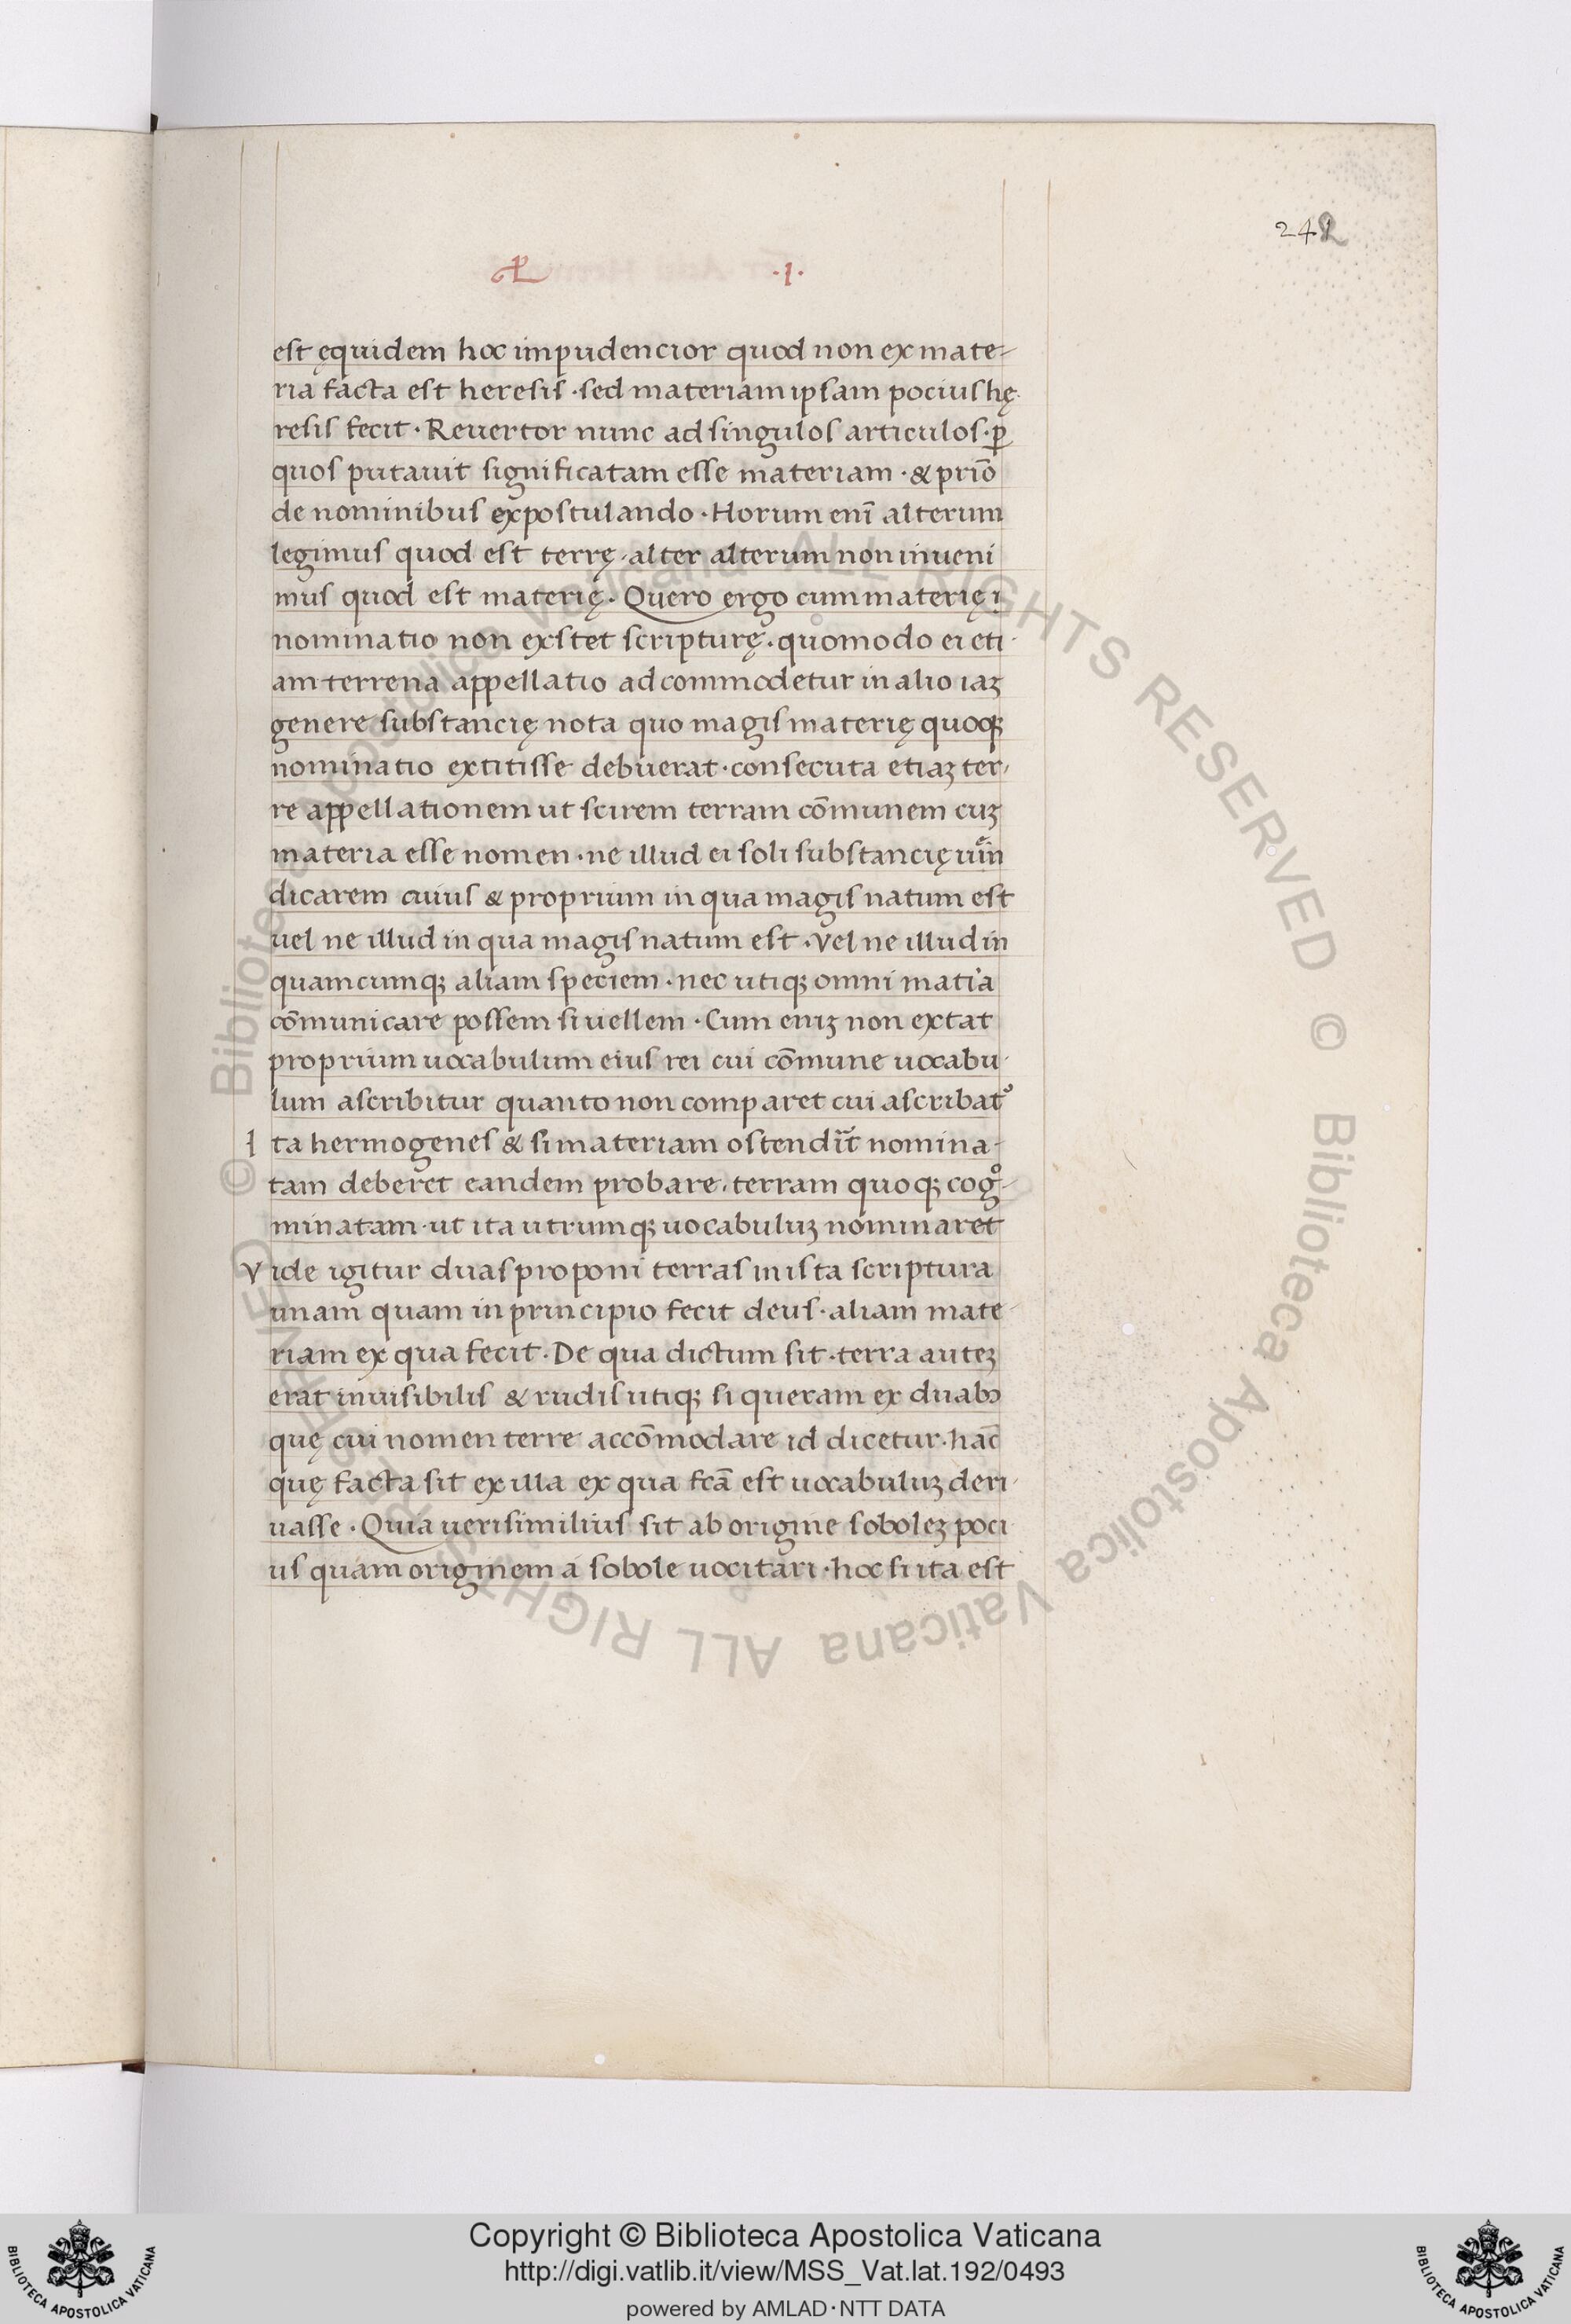 242
.I.
est ęquidem hoc impudencior quod non ex mate-
ria facta est heresis · sed materiam ipsam pocius hę-
resis fecit · Reuertor nunc ad singulos articulos · ꝑ
quos putauit significatam esse materiam · & prīo
de nominibus expostulando · Horum enī alterum
legimus quod est terrę · alter alterum non inueni
mus quod est materię · Quero ergo cum materię ı
nominatio non exstet scripturę · quomodo ei eti-
am terrena appellatio adcommodetur in alio iaꝫ
genere substancię nota quo magis materię quoqꝫ
nominatio extitisse debuerat · consecuta etiaꝫ ter-
re appellationem ut scirem terram cōmunem cuꝫ
materia esse nomen · ne illud ei soli substancię uin
dicarem cuius & proprium in qua magis natum est
uel ne illud in qua magis natum est · Vel ne illud in
quamcumqꝫ aliam speciem · nec utiqꝫ omni mat'ia
cōmunicare possem si uellem · Cum eniꝫ non extat
proprium uocabulum eius rei cui cōmune uocabu-
lum ascribitur quanto non comparet cui ascribat᷑
I ta hermogenes & si materiam ostendit nomina-
tam deberet eandem probare · terram quoqꝫ cogͦ-
minatam · ut ita utrumqꝫ uocabuluꝫ nominaret
V ide igitur duas proponi terras in ista scriptura
unam quam in principio fecit deus · aliam mate-
riam ex qua fecit · De qua dictum sit · terra auteꝫ
erat inuisibilis & rudis utiqꝫ si queram ex duabꝰ
quę cui nomen terre accōmodare id dicetur · hāc
quę facta sit ex illa ex qua fcā est uocabuluꝫ deri-
uasse · Quia uerisimilius sit ab origine soboleꝫ poci
us quam originem a sobole uocitari · hoc si ita est
© Biblioteca Apostolica Vaticana ALL RIGHTS RESERVED © Biblioteca Apostolica Vaticana ALL RIGHTS RESERVED
Copyright © Biblioteca Apostolica Vaticana
http://digi.vatlib.it/view/MSS_Vat.lat.192/0493
powered by AMLAD·NTT DATA
BIBLIOTECA APOSTOLICA VATICANA
BIBLIOTECA APOSTOLICA VATICANA